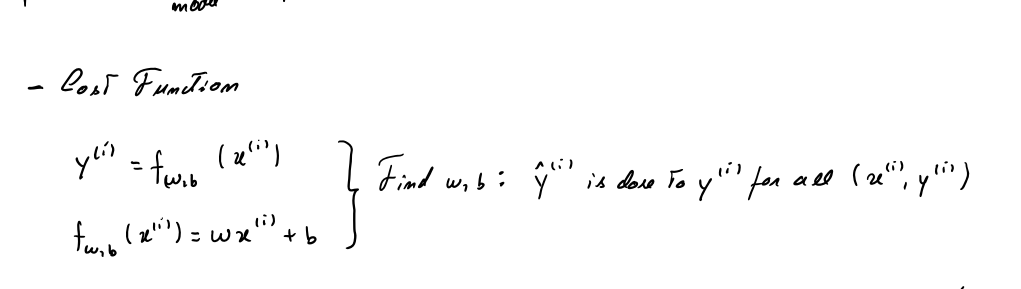 model
- Cost Function
y^(i) = f_w,b (x^(i))
f_w,b (x^(i)) = wx^(i) + b
Find w, b : ŷ^(i) is close to y^(i) for all (x^(i), y^(i))